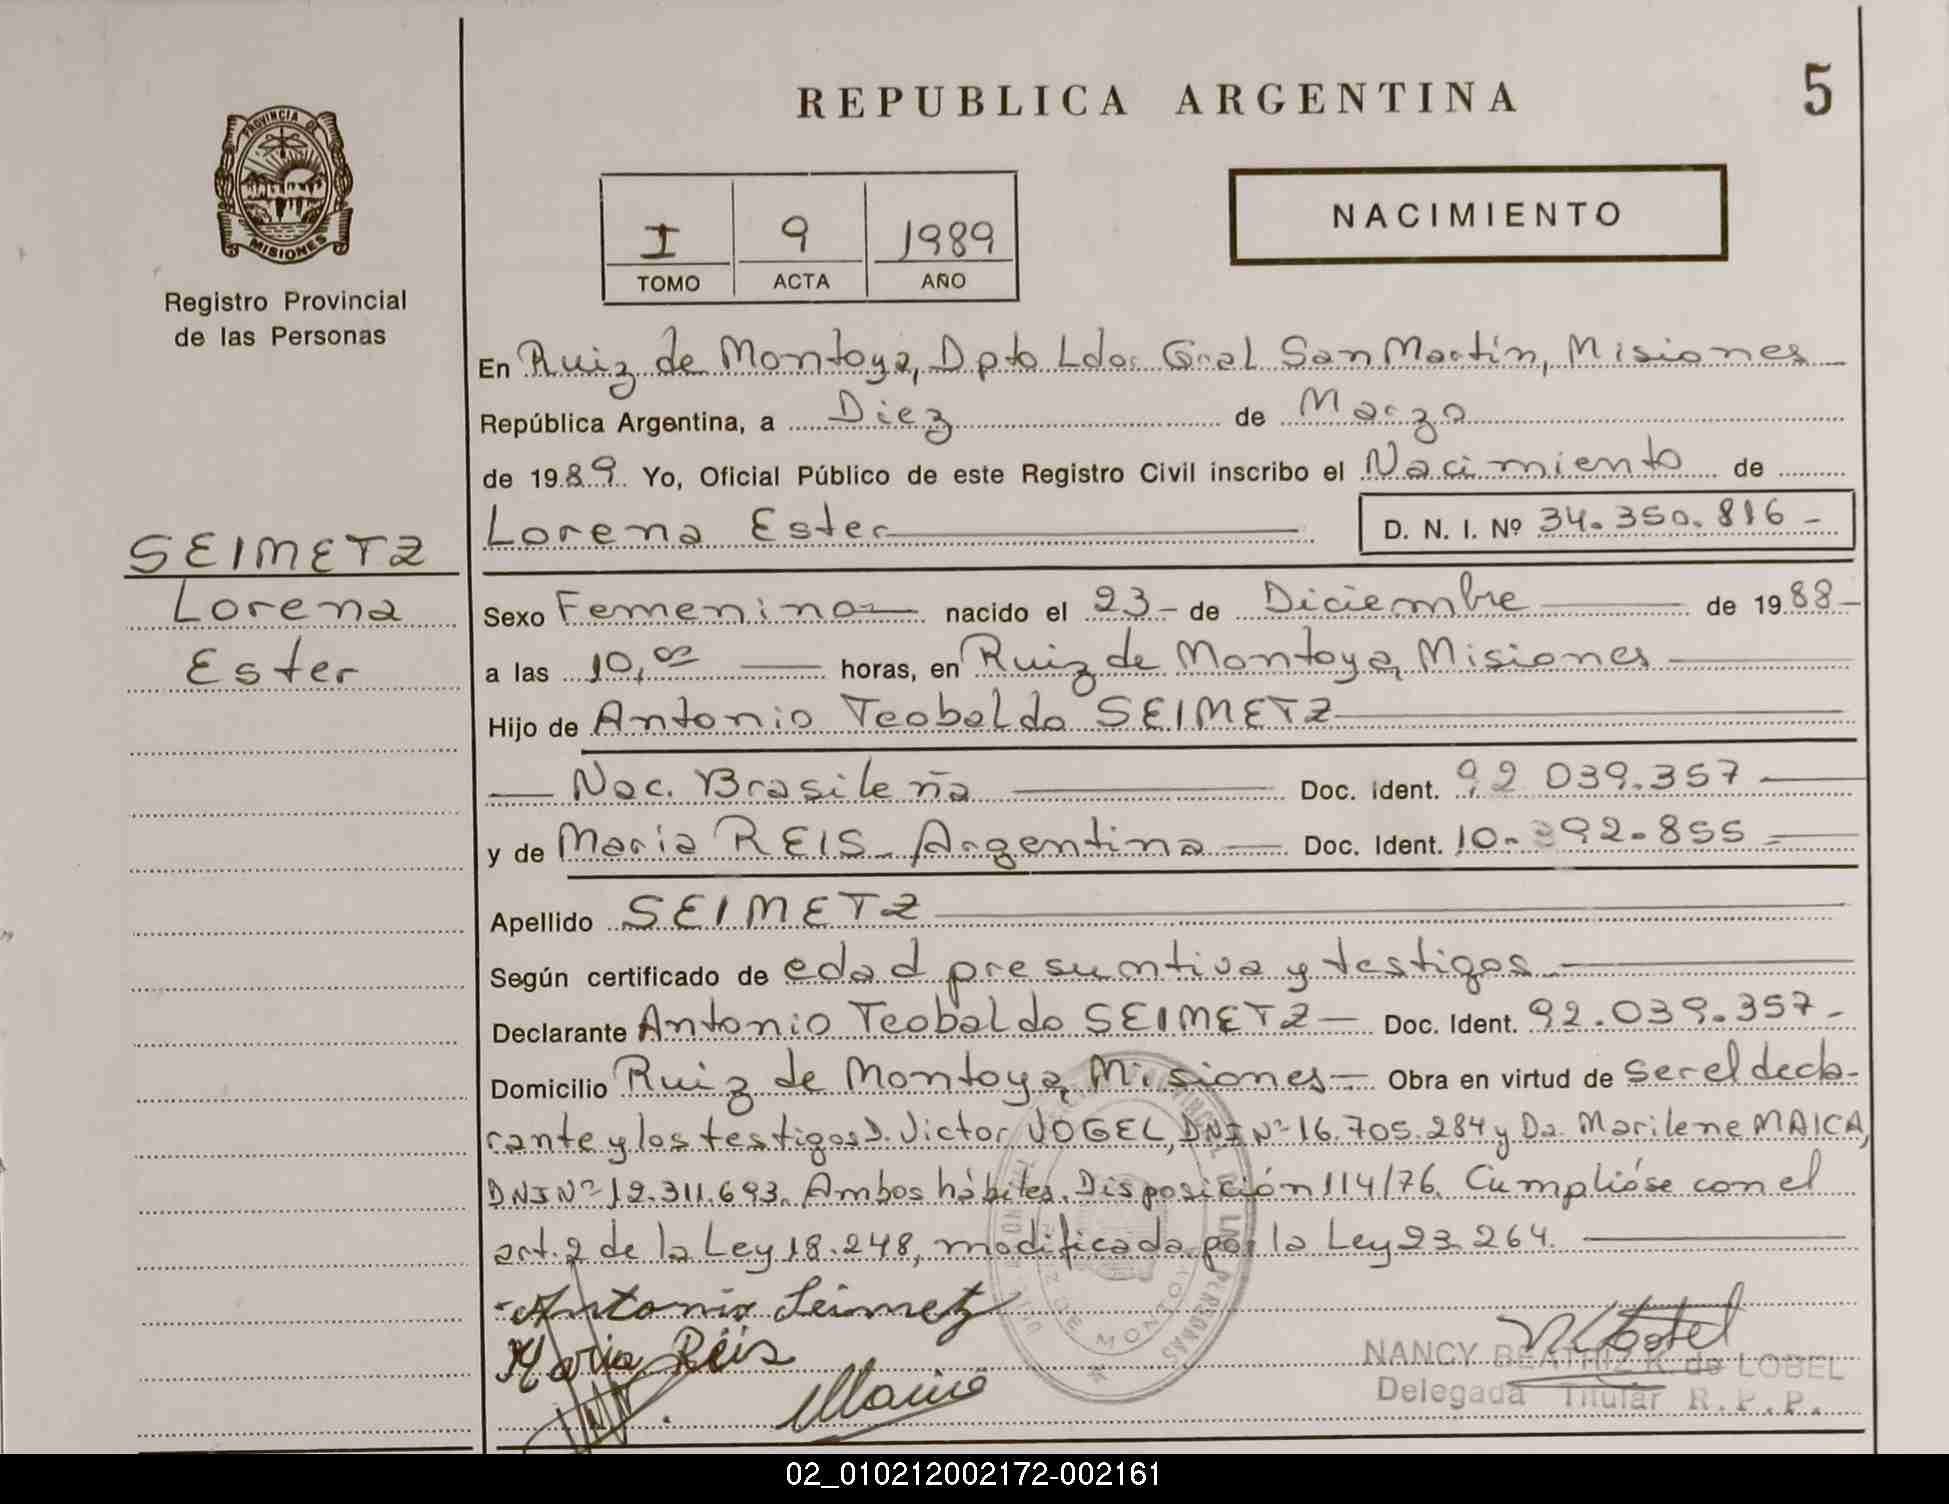 REPUBLICA ARGENTINA
5
PROVINCIA DE
MISIONES
Registro Provincial
de las Personas
I 9 1989
TOMO ACTA AÑO
NACIMIENTO
En Ruiz de Montoya, Dpto Ldor Gral San Martín, Misiones
República Argentina, a Diez de Marzo
de 1989. Yo, Oficial Público de este Registro Civil inscribo el Nacimiento de
Lorena Ester D. N. I. Nº 34.350.816 -
SEIMETZ
Lorena
Ester
Sexo Femenino nacido el 23 - de Diciembre de 1988 -
a las 10,00 horas, en Ruiz de Montoya, Misiones
Hijo de Antonio Teobaldo SEIMETZ
Nac. Brasileña Doc. Ident. 92 039.357
y de Maria REIS - Argentina Doc. Ident. 10. 92.855
Apellido SEIMETZ
Según certificado de edad presuntiva y testigos
Declarante Antonio Teobaldo SEIMETZ Doc. Ident. 92.039.357 -
Domicilio Ruiz de Montoya, Misiones Obra en virtud de ser el decla-
rante y los testigos D. Victor VOGEL, DNI Nº 16.705.284 y Da. Marilene MAICA,
DNI Nº 12.311.693. Ambos hábiles. Disposición 114/76. Cumplióse con el
art. 2 de la Ley 18.248, modificada por la Ley 23.264.
Antonio Seimetz
Maria Reis
NANCY BEATRIZ K. de LOBEL
Delegada Titular R.P.P.
02_010212002172-002161